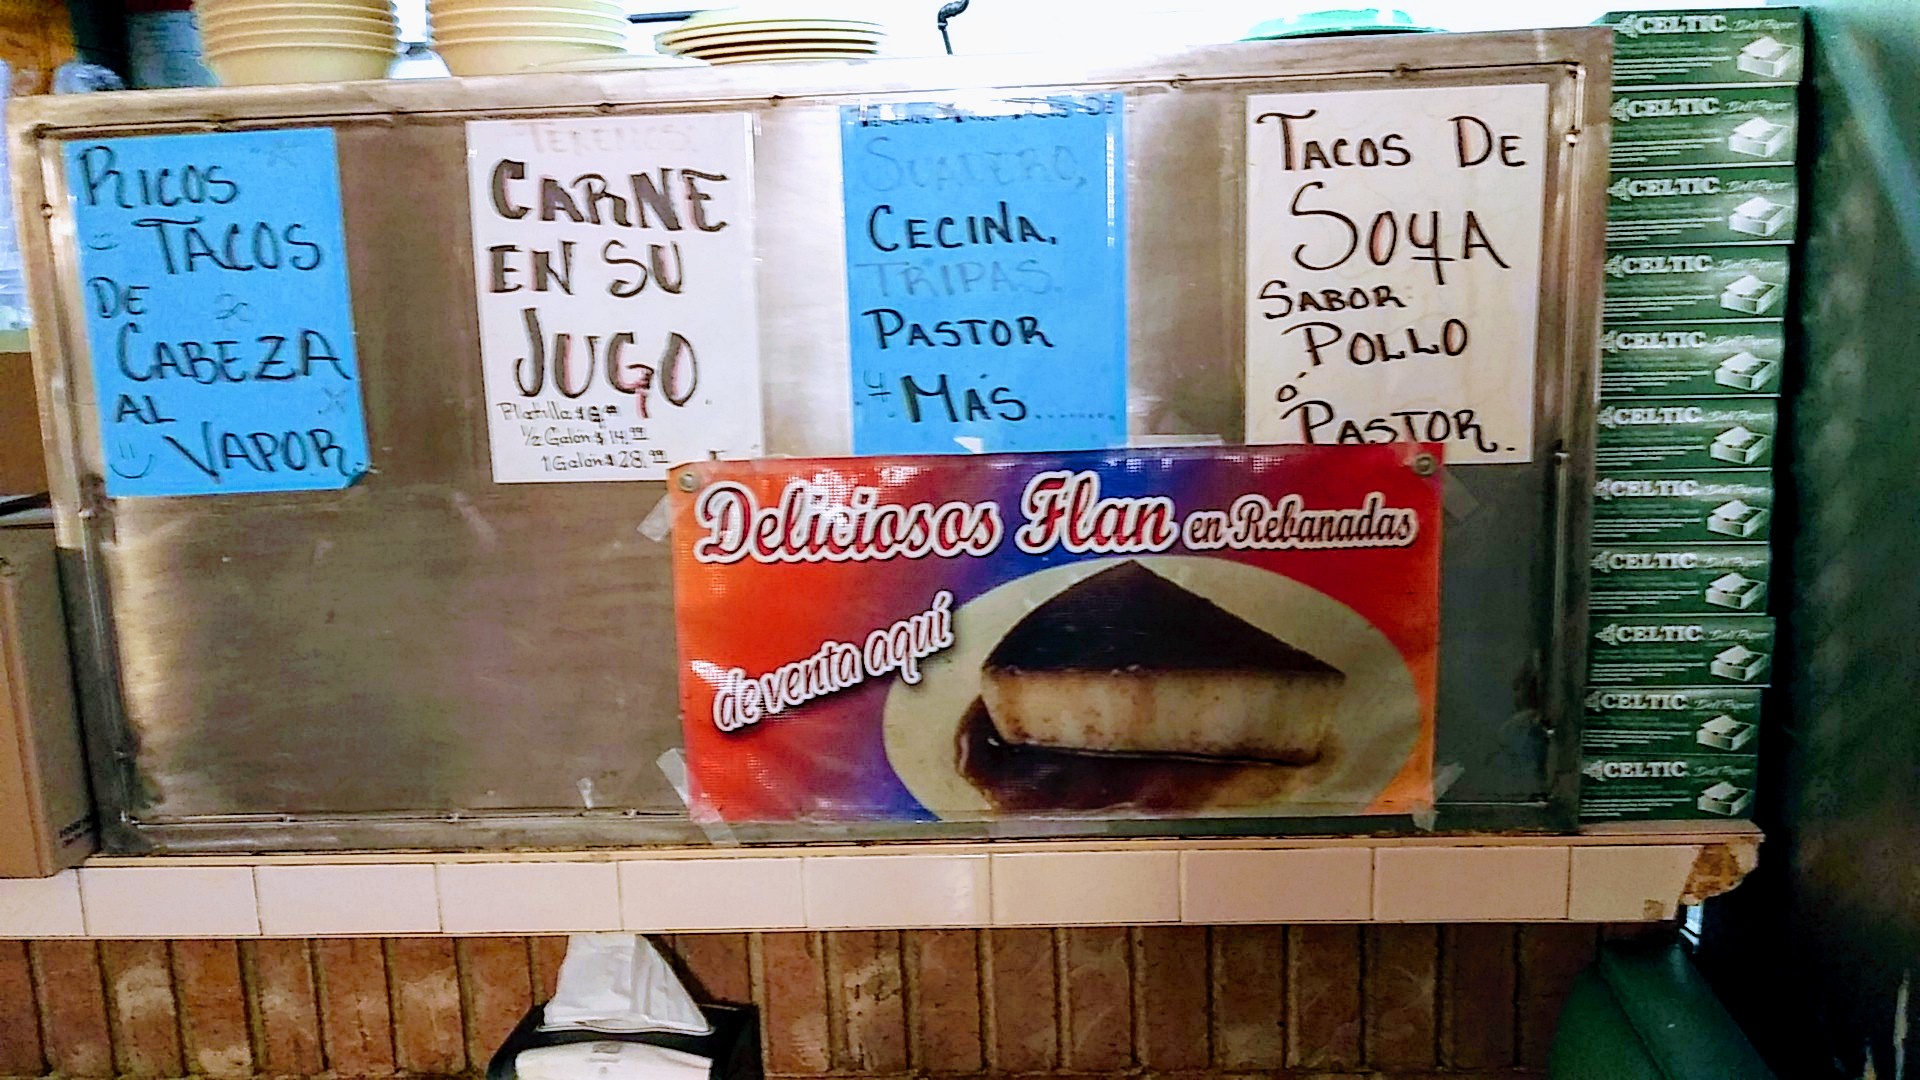 RICOS
TACOS
DE
CABEZA
AL
VAPOR.
TENEMOS:
CARNE
EN SU
JUGO.
1/2 Galón $14.99
1 Galón $28.99
SUADERO,
CECINA,
TRIPAS.
PASTOR
y MÁS
TACOS DE
SOYA
SABOR:
POLLO
ó
PASTOR.
Deliciosos Flan en Rebanadas
de venta aquí
CELTIC Deli Paper
CELTIC Deli Paper
CELTIC Deli Paper
CELTIC Deli Paper
CELTIC Deli Paper
CELTIC Deli Paper
CELTIC Deli Paper
CELTIC Deli Paper
CELTIC Deli Paper
CELTIC Deli Paper
CELTIC Deli Paper